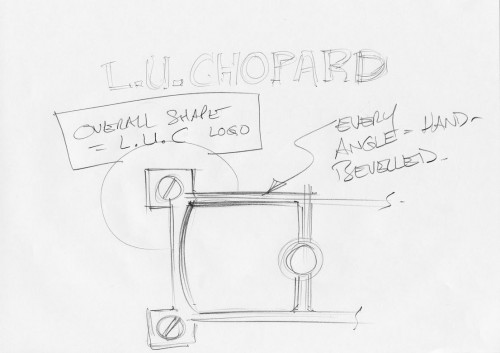 L.U.CHOPARD
OVERALL SHAPE
= L.U.C LOGO
EVERY
ANGLE = HAND-
BEVELLED.